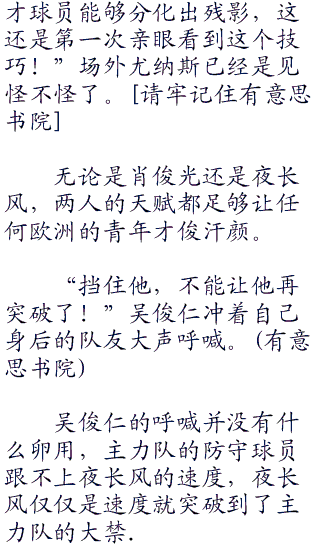 才球员能够分化出残影，这
还是第一次亲眼看到这个技
巧！”场外尤纳斯已经是见
怪不怪了。[请牢记住有意思
书院]
无论是肖俊光还是夜长
风，两人的天赋都足够让任
何欧洲的青年才俊汗颜。
“挡住他，不能让他再
突破了！”吴俊仁冲着自己
身后的队友大声呼喊。(有意
思书院)
吴俊仁的呼喊并没有什
么卵用，主力队的防守球员
跟不上夜长风的速度，夜长
风仅仅是速度就突破到了主
力队的大禁.